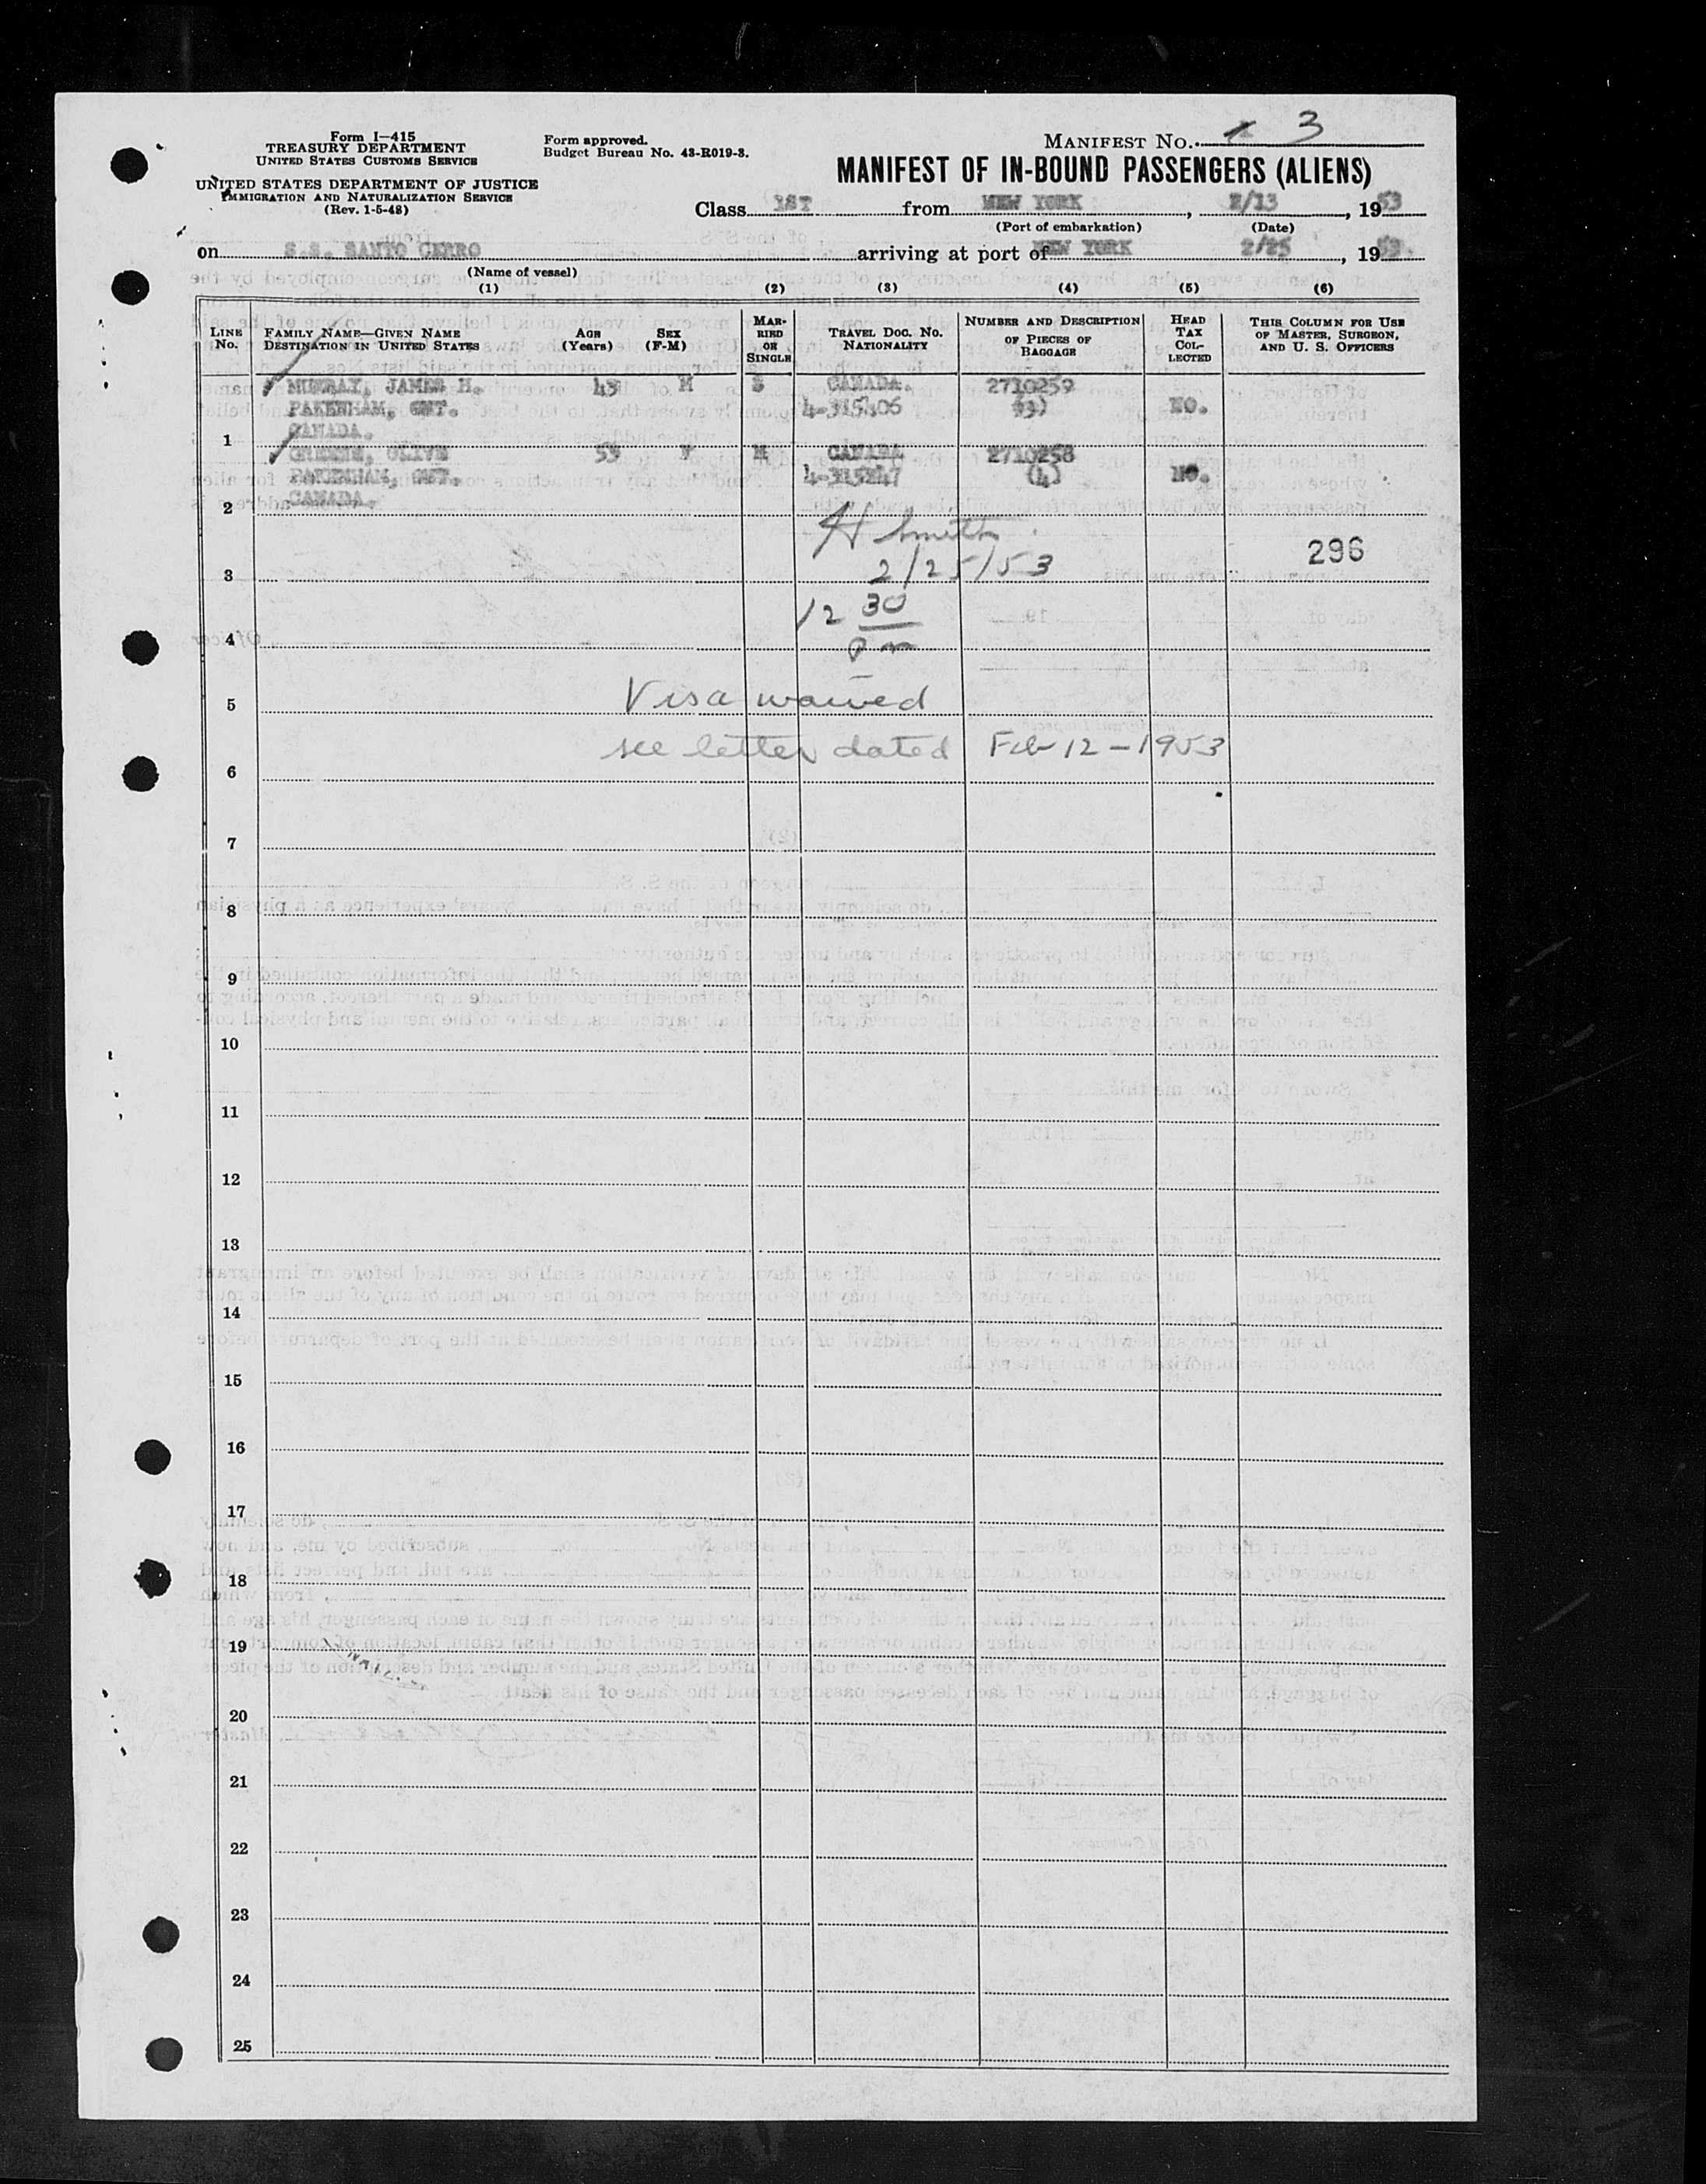 Form I—415
TREASURY DEPARTMENT
UNITED STATES CUSTOMS SERVICE
UNITED STATES DEPARTMENT OF JUSTICE
IMMIGRATION AND NATURALIZATION SERVICE
(Rev. 1-5-48)
Form approved.
Budget Bureau No. 43-R019-3.
MANIFEST NO. 3
MANIFEST OF IN-BOUND PASSENGERS (ALIENS)
Class 1ST from NEW YORK, 2/13, 1953
(Port of embarkation) (Date)
on S.S. SANTO CERRO arriving at port of NEW YORK 2/25, 1953.
(Name of vessel)
(1) (2) (3) (4) (5) (6)
LINE No. FAMILY NAME—GIVEN NAME DESTINATION IN UNITED STATES AGE (Years) SEX (F-M) MARRIED OR SINGLE TRAVEL DOC. NO. NATIONALITY NUMBER AND DESCRIPTION OF PIECES OF BAGGAGE HEAD TAX COLLECTED THIS COLUMN FOR USE OF MASTER, SURGEON, AND U. S. OFFICERS
MURRAY, JAMES H. 43 M S CANADA. 2710259
PAKENHAM, ONT. 4-315406 NO.
CANADA.
1
GREENE, OLIVE 55 F M CANADA 2710258
PAKENHAM, ONT. (4) NO.
CANADA.
2
H Smith
296
2/25/53
3
12 30
pm
4
Visa waived
5
see letter dated Feb 12-1953
6
7
8
9
10
11
12
13
14
15
16
17
18
19
20
21
22
23
24
25